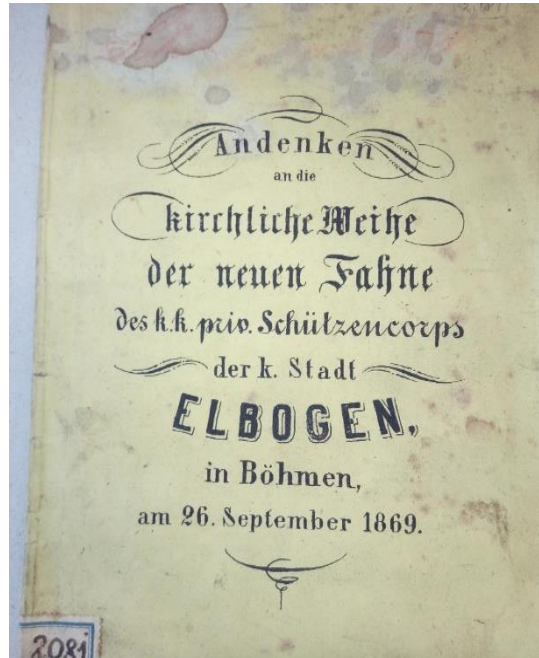 Andenken
an die
kirchliche Weihe
der neuen Fahne
des k.k. priv. Schützencorps
der k. Stadt
ELBOGEN,
in Böhmen,
am 26. September 1869.